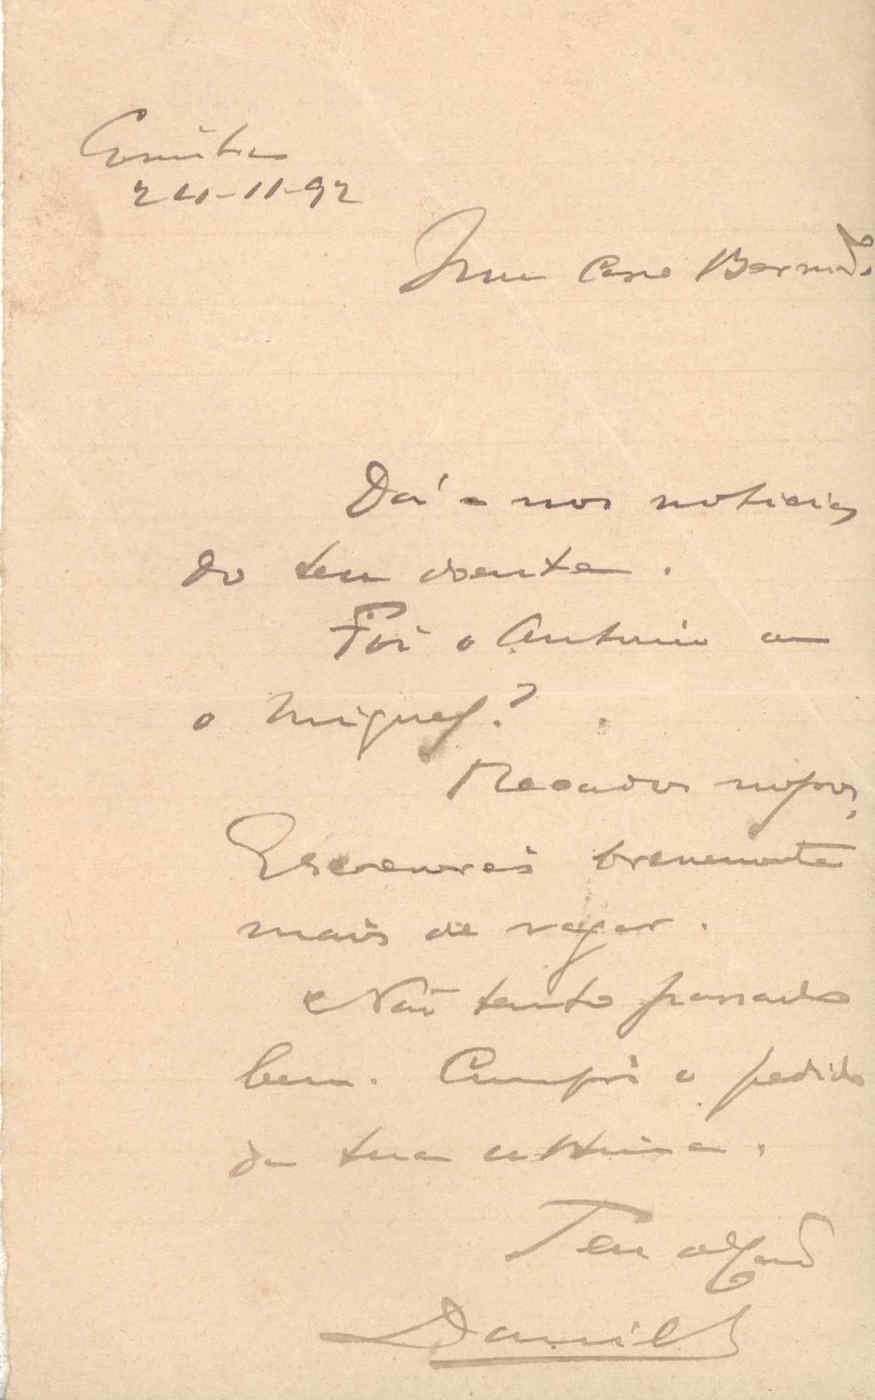 Coimbra
24-11-92
Meu Caro Bernardo
Dá-nos noticias
do teu doente.
Foi o Antonio ou
o Miguel?
Recados nossos,
Escreverei brevemente
mais de vagar.
Não tenho passado
bem. Cumpri o pedido
da tua ultima.
Teu
Daniel